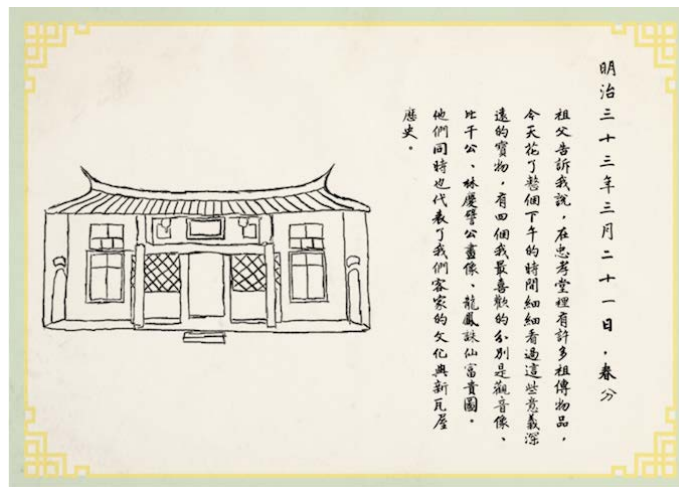 明治三十三年三月二十一日，春分
祖父告訴我說，在忠孝堂裡有許多祖傳物品，
今天花了整個下午的時間細細看過這些意義深
遠的寶物，有四個我最喜歡的分別是觀音像、
比干公、林慶譬公畫像、龍鳳詠仙富貴圖。
他們同時也代表了我們客家的文化與新瓦屋
歷史。